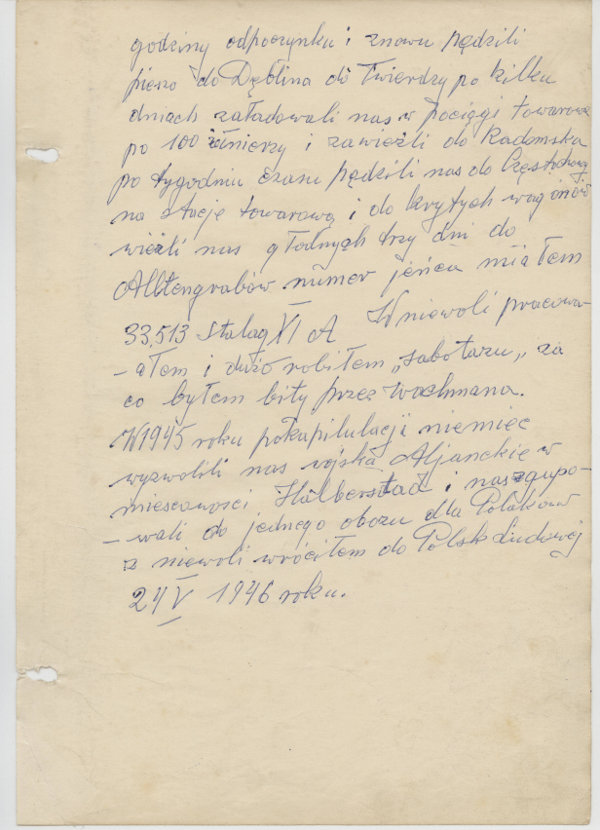 godziny odpoczynku i znowu pędzili
pieszo do Dęblina do Twierdzy po kilku
dniach załadowali nas w pociągi towarowe
po 100 żołnierzy i zawieźli do Radomska
po tygodniu czasu pędzili nas do
na stację towarową i do krytych wagonów
wieźli nas głodnych trzy dni do
Albtengrabów numer jeńca miałem
33,513 Stalag XI A W niewoli pracowa-
-ałem i dużo robiłem „sabotażu„ za
co byłem bity przez wachmana.
W 1945 roku pokapitulacji niemiec
wyzwolili nas wojska Aljanckie w
miescowosci Halberstad i nas zgupo-
- wali do jednego obozu dla Polaków
z niewoli wróciłem do Polsk Ludowej
24 V 1946 roku.